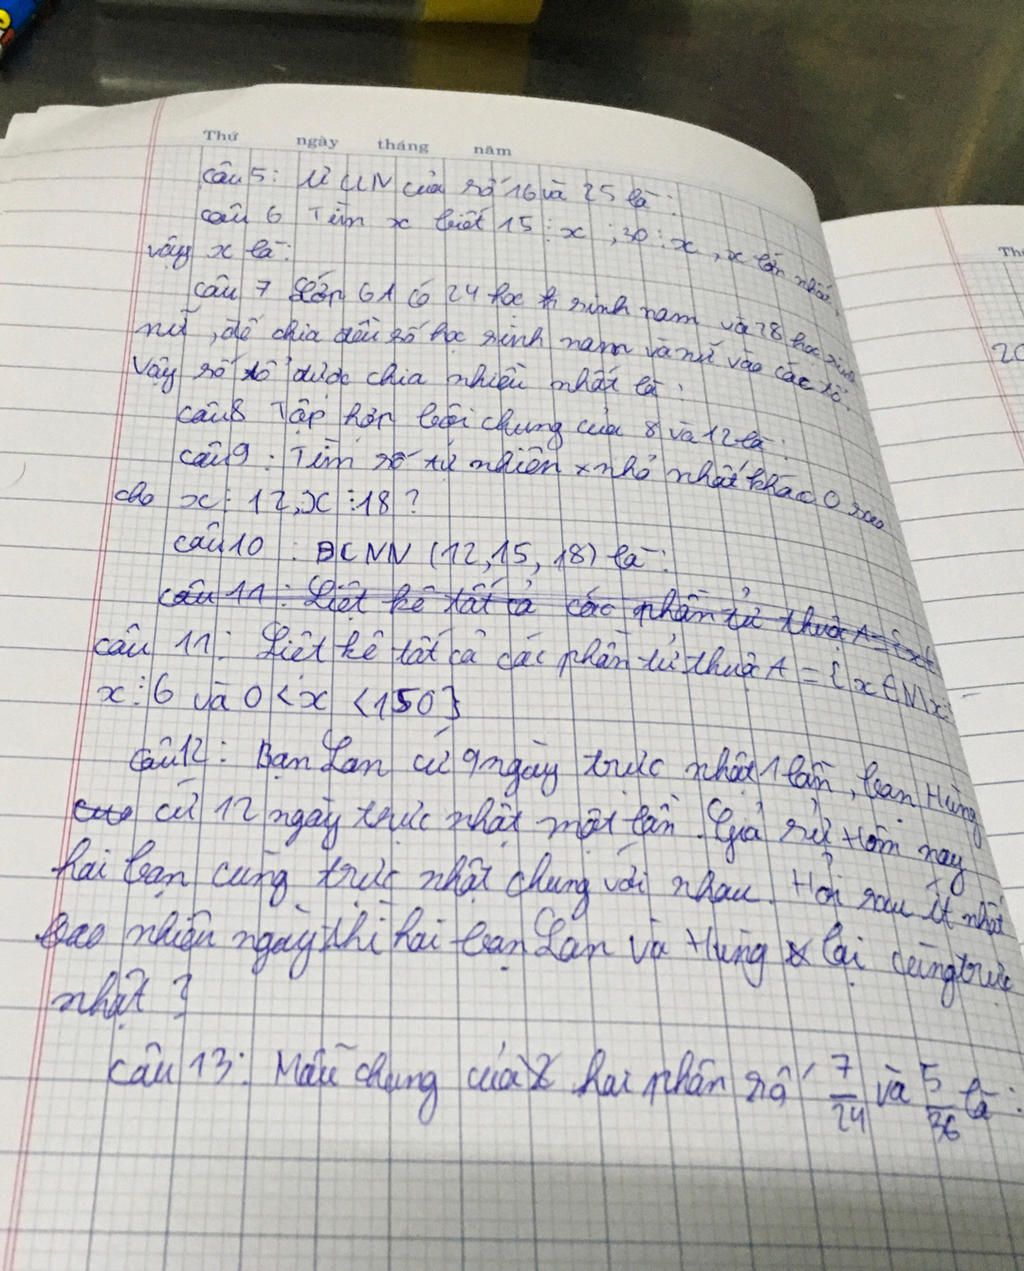 Thứ ngày tháng năm
câu 5: ƯCLN của số 16 và 25 là:
câu 6 Tìm x biết 15 ⋮ x ; 30 ⋮ x, x lớn nhất,
vậy x là:
câu 7 Lớp 6A có 24 học sinh nam và 28 học sinh
nữ, để chia đều số học sinh nam và nữ vào các tổ.
Vậy số tổ được chia nhiều nhất là:
câu 8 Tập hợp bội chung của 8 và 12 là:
câu 9: Tìm số tự nhiên x nhỏ nhất khác 0 sao
cho x ⋮ 12, x ⋮ 18?
câu 10: BCNN (12, 15, 18) là:
câu 11: Liệt kê tất cả các phần tử thuộc A = {x ∈
câu 11: Liệt kê tất cả các phần tử thuộc A = {x ∈ N \ x ⋮
x ⋮ 6 và 0 < x < 150}
câu 12: Bạn Lan cứ 9 ngày trực nhật 1 lần, bạn Hùng
cứ 12 ngày trực nhật một lần. Giả sử Hôm nay
hai bạn cùng trực nhật chung với nhau. Hỏi sau ít nhất
bao nhiêu ngày thì hai bạn Lan và Hùng lại cùng trực
nhật?
câu 13: Mẫu chung của hai phân số 7/24 và 5/36 là:
Th
20